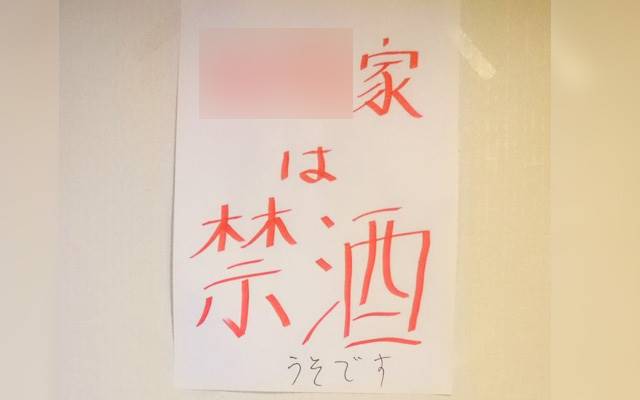 家
は
禁酒
うそです